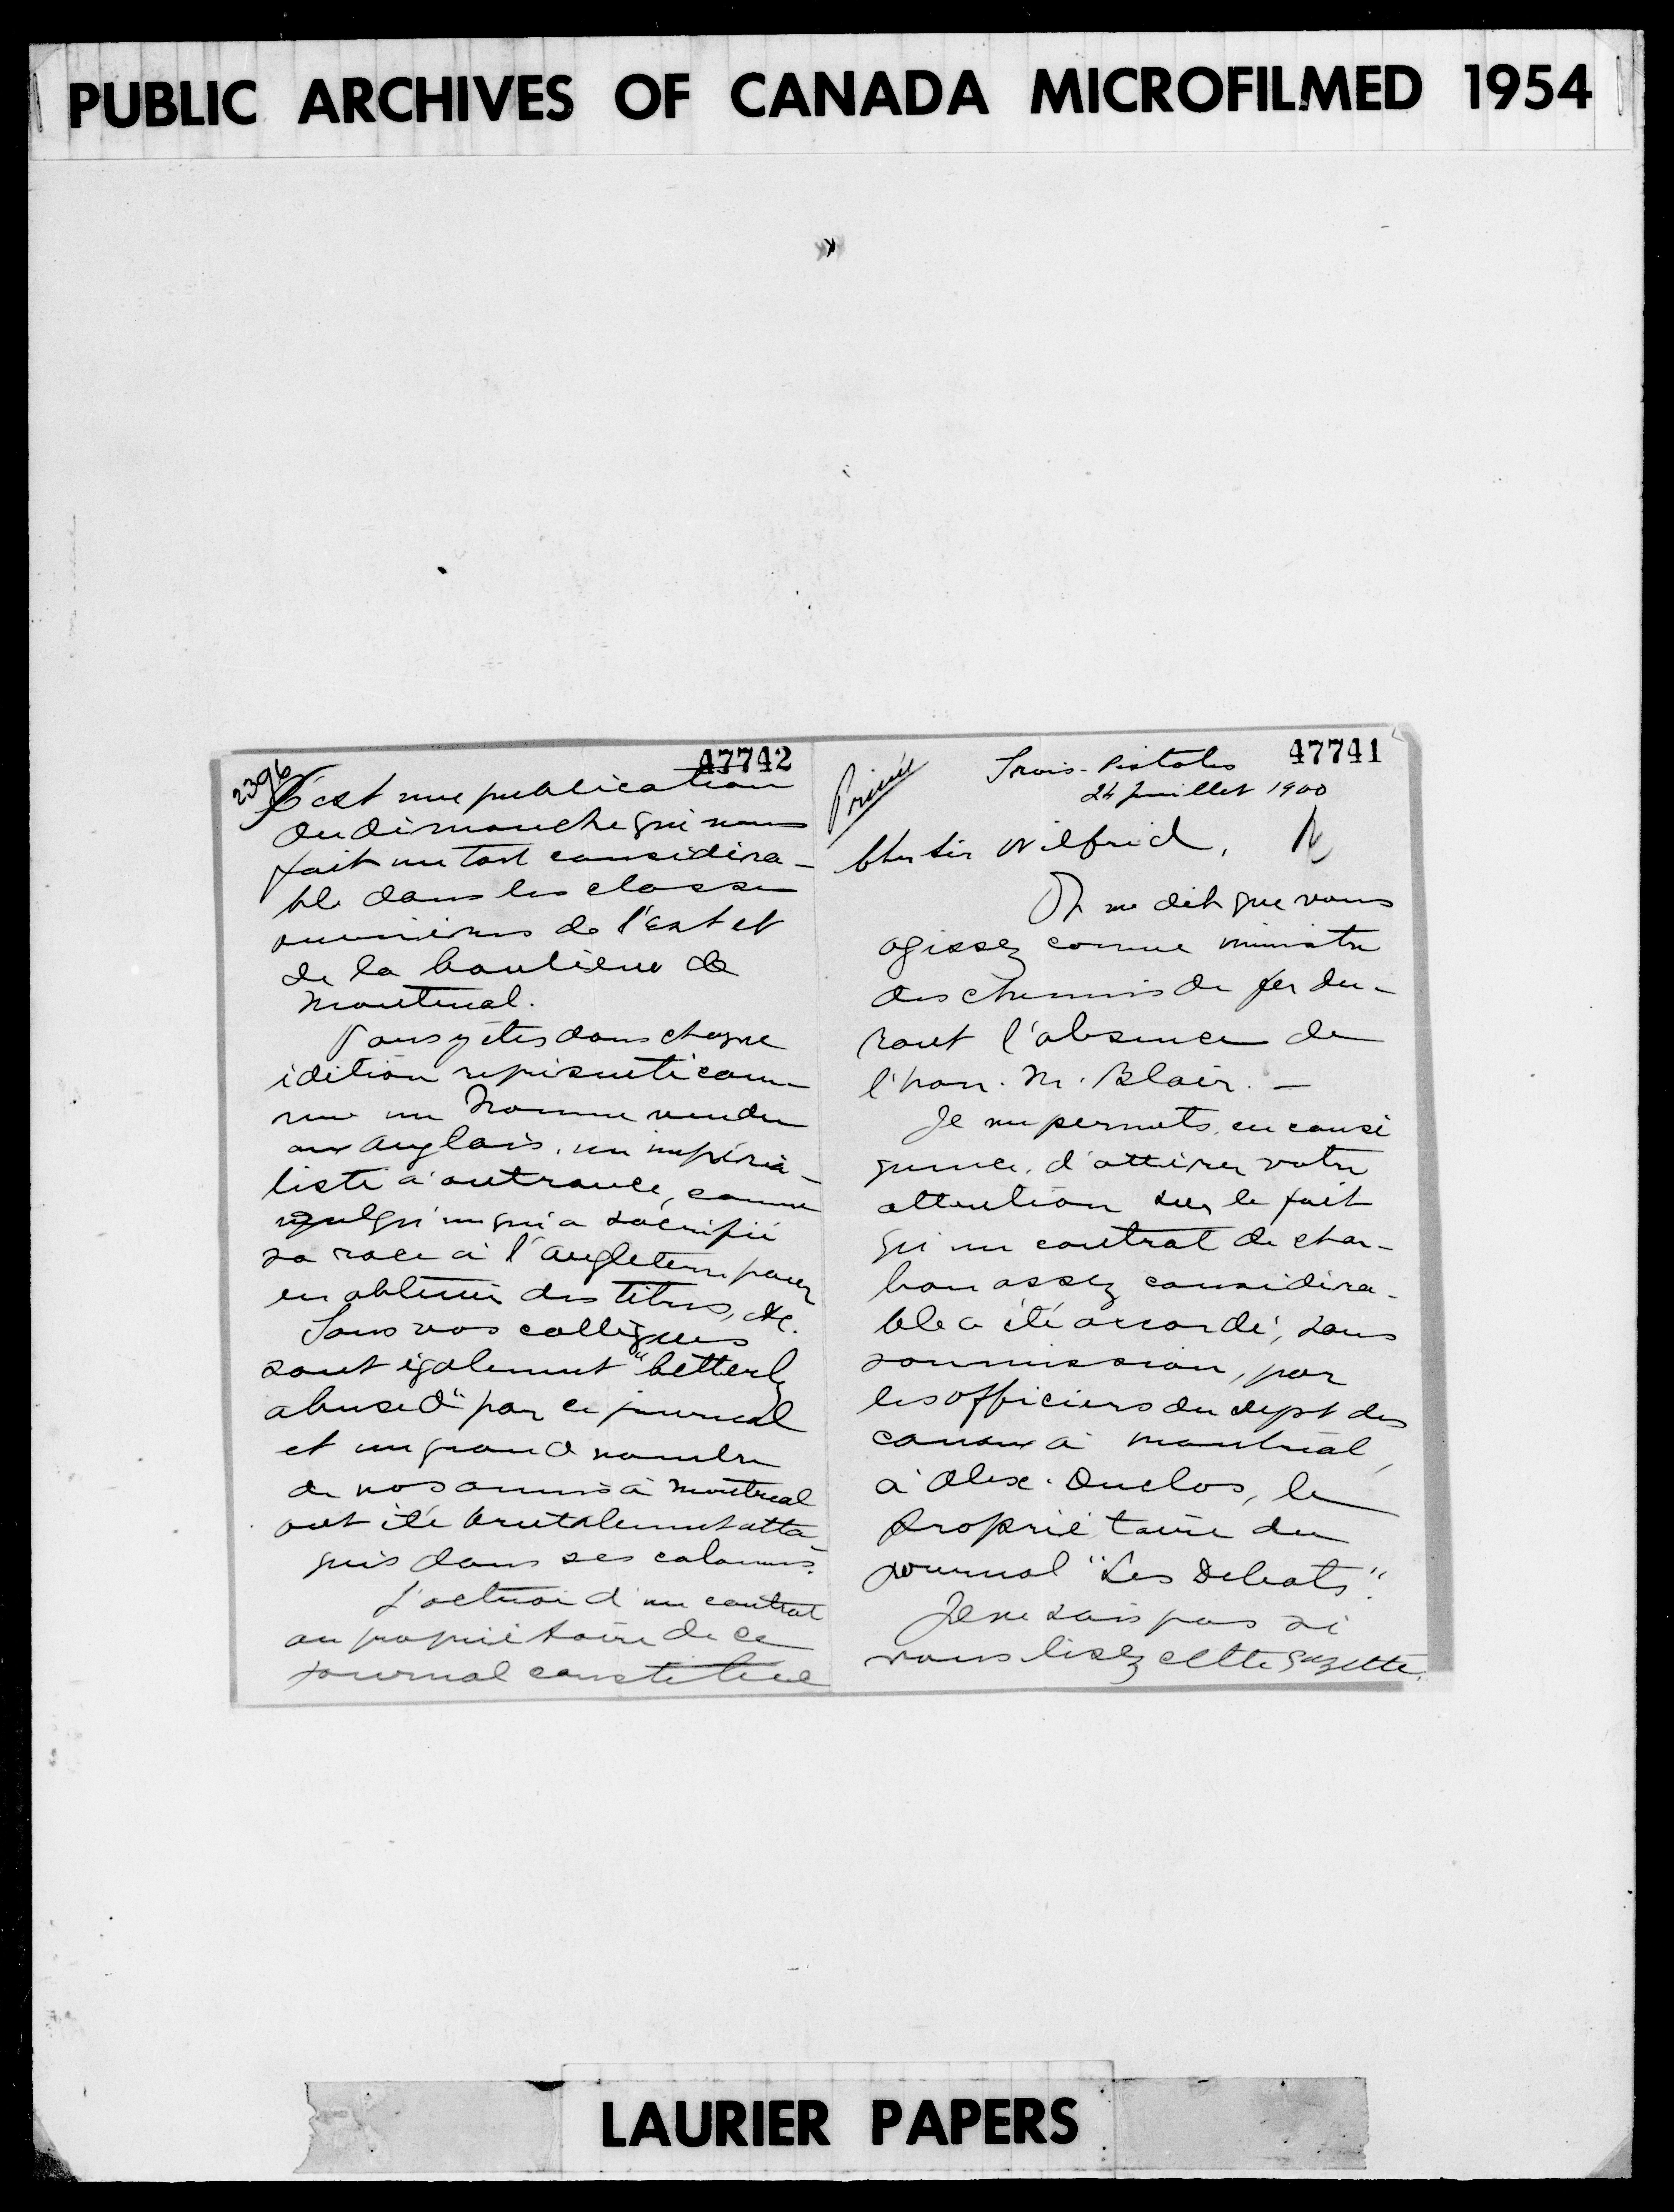 PUBLIC ARCHIVES OF CANADA MICROFILMED 1954
47741
Privée
Trois-Pistoles
24 juillet 1900
Cher Sir Wilfrid,
On me dit que vous
agissez comme ministre
des chemins de fer du-
rant l'absence de
l'hon. M. Blair. —
Je me permets, en consé
quence, d'attirer votre
attention sur le fait
qu'un contrat de char-
bon assez considéra-
ble a été accordé, sans
soumission, par
les officiers du dept des
canaux à Montréal,
à Alex. Duclos, le
propriétaire du
journal "Les Debats".
Je ne sais pas si
vous lisez cette gazette.
47742
2396
C'est une publication
du dimanche qui nous
fait un tort considéra-
ble dans les classes
ouvrières de l'Est et
de la banlieue de
Montreal.
Vous y êtes dans chaque
édition représenté com-
me un homme vendu
aux Anglais, un impéria-
liste à outrance, comme
quelqu'un qui a sacrifié
sa race à l'Angleterre pour
en obtenir des titres, etc.
Tous vos collègues
sont également "bitterly
abused" par ce journal
et un grand nombre
de nos amis à Montreal
ont été brutalement atta
qués dans ses colonnes.
L'octroi d'un contrat
au propriétaire de ce
journal constitue
LAURIER PAPERS